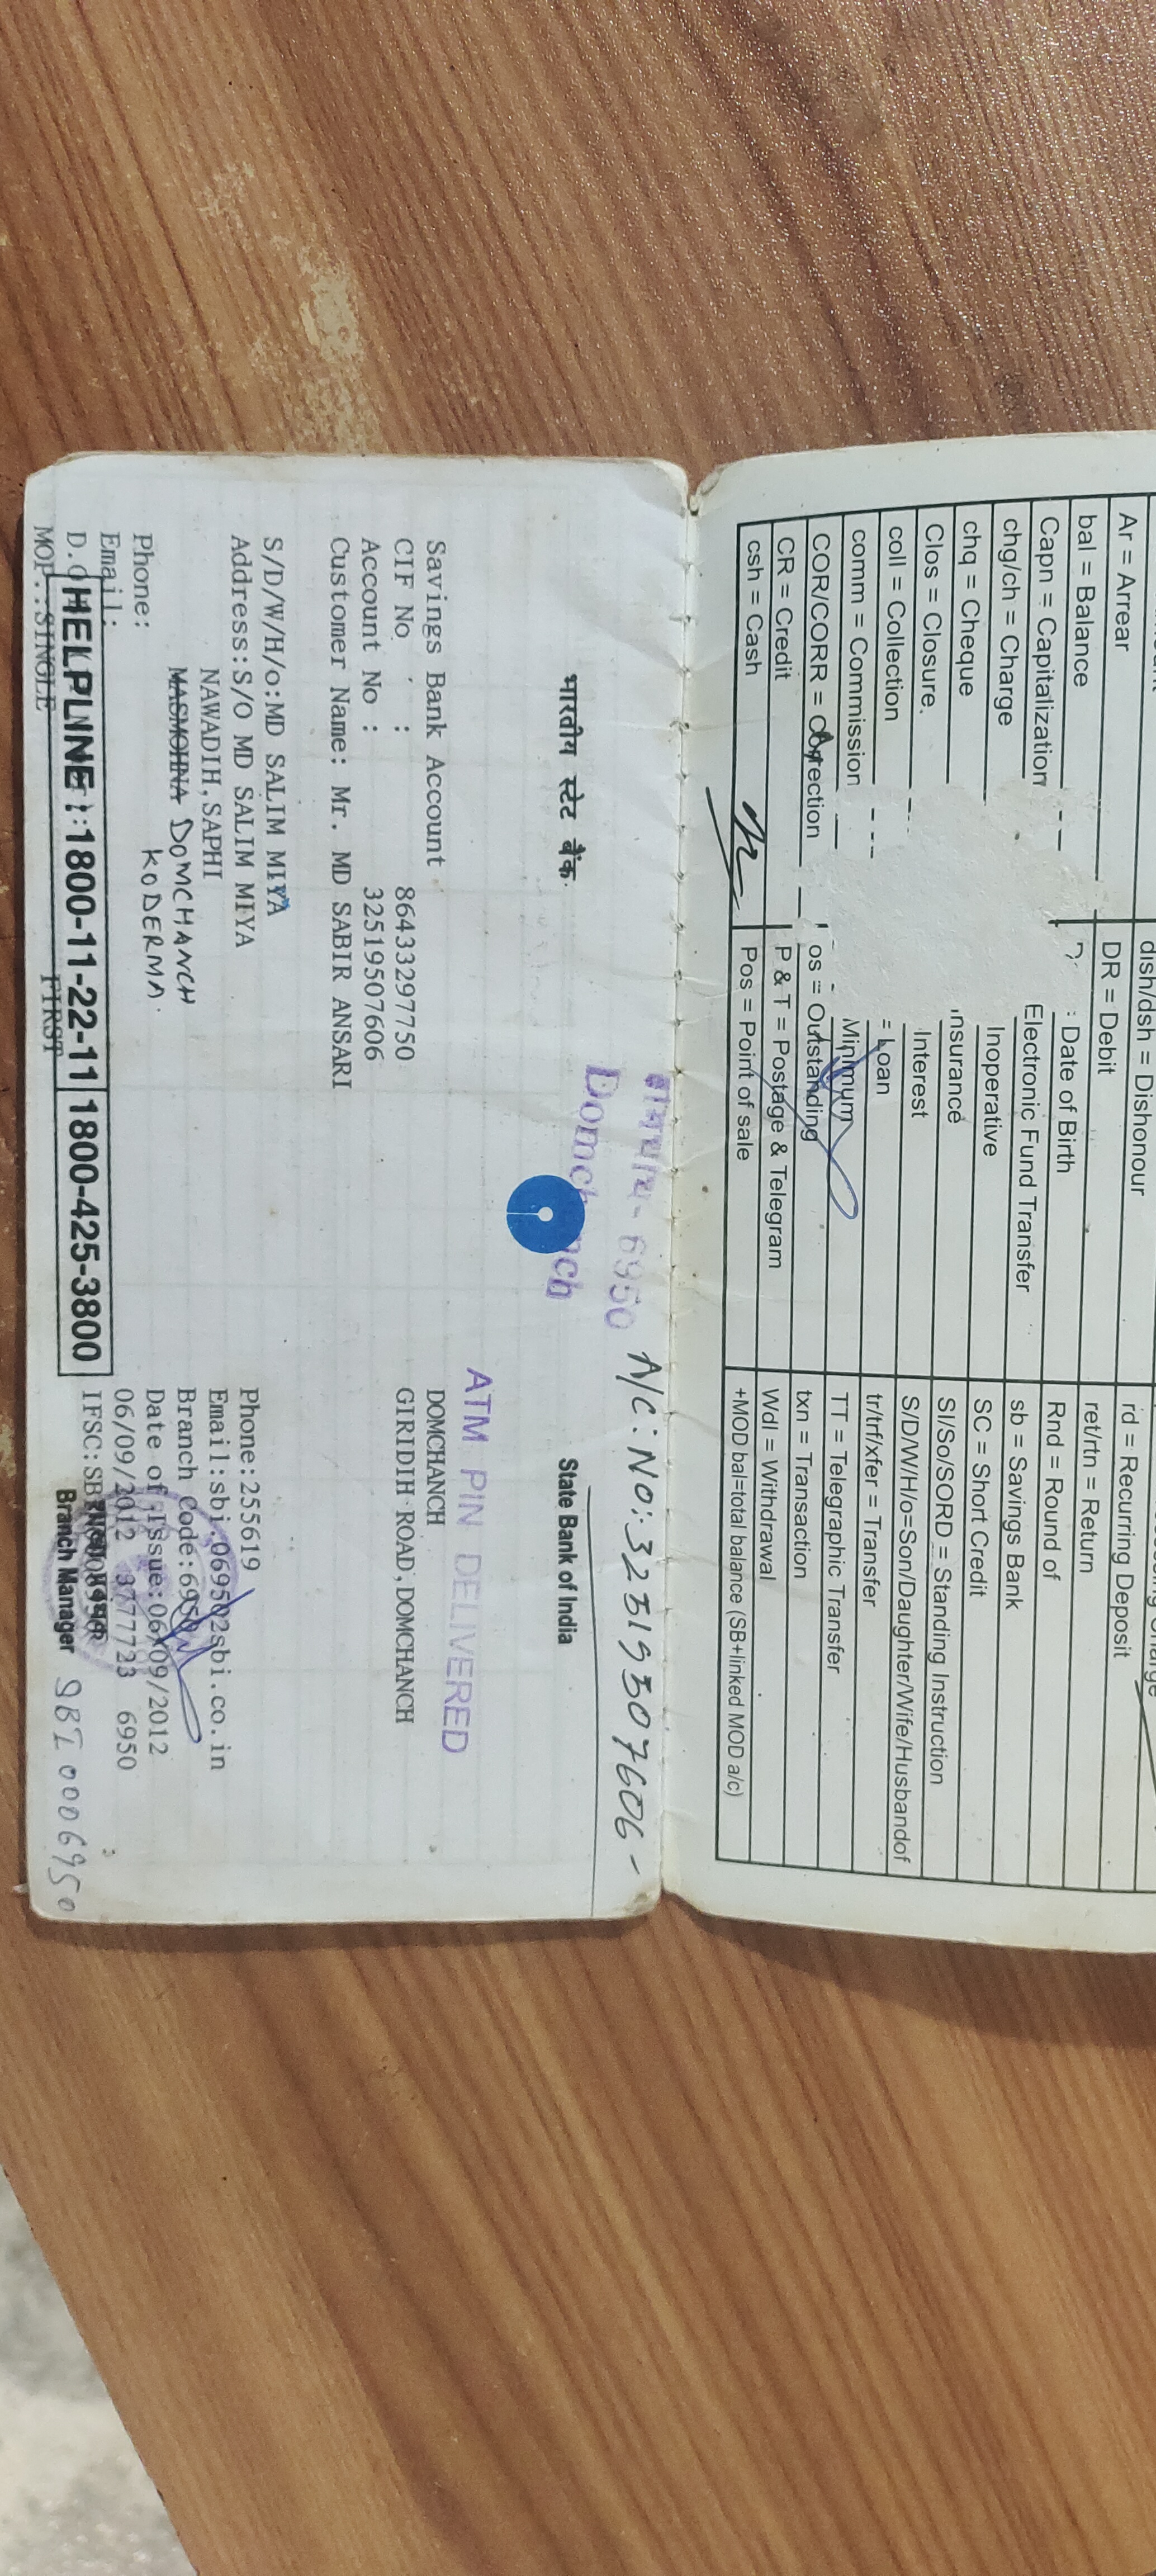 Ar = Arrear
bal = Balance
Capn = Capitalization
chg/ch = Charge
chq = Cheque
Clos = Closure.
coll = Collection
comm = Commission
COR/CORR = Correction
CR = Credit
csh = Cash
dish/dsh = Dishonour
DR = Debit
: Date of Birth
Electronic Fund Transfer
Inoperative
nsurance
Interest
= Loan
Minimum
os = Outstanding
P & T = Postage & Telegram
Pos = Point of sale
rd = Recurring Deposit
ret/rtn = Return
Rnd = Round of
sb = Savings Bank
SC = Short Credit
SI/So/SORD = Standing Instruction
S/D/W/H/o=Son/Daughter/Wife/Husbandof
tr/trf/xfer = Transfer
TT = Telegraphic Transfer
txn = Transaction
Wdl = Withdrawal
+MOD bal=total balance (SB+linked MOD a/c)
6950 A/C: NO:-32519507606-
Domchanch
भारतीय स्टेट बैंक
State Bank of India
ATM PIN DELIVERED
Savings Bank Account
CIF No : 86433297750
Account No : 32519507606
Customer Name: Mr. MD SABIR ANSARI
S/D/W/H/o:MD SALIM MIYA
Address:S/O MD SALIM MIYA
NAWADIH,SAPHI
MASMOHNA DOMCHANCH
KODERMA.
Phone:
Email:
MOP.:SINGLE FIRST
HELPLINE : 1800-11-22-11 1800-425-3800
DOMCHANCH
GIRIDIH ROAD,DOMCHANCH
Phone:255619
Email:sbi.06950@sbi.co.in
Branch Code:6950
Date of Issue:06/09/2012
06/09/2012 3777723 6950
IFSC:
Branch Manager
SBI 0006950